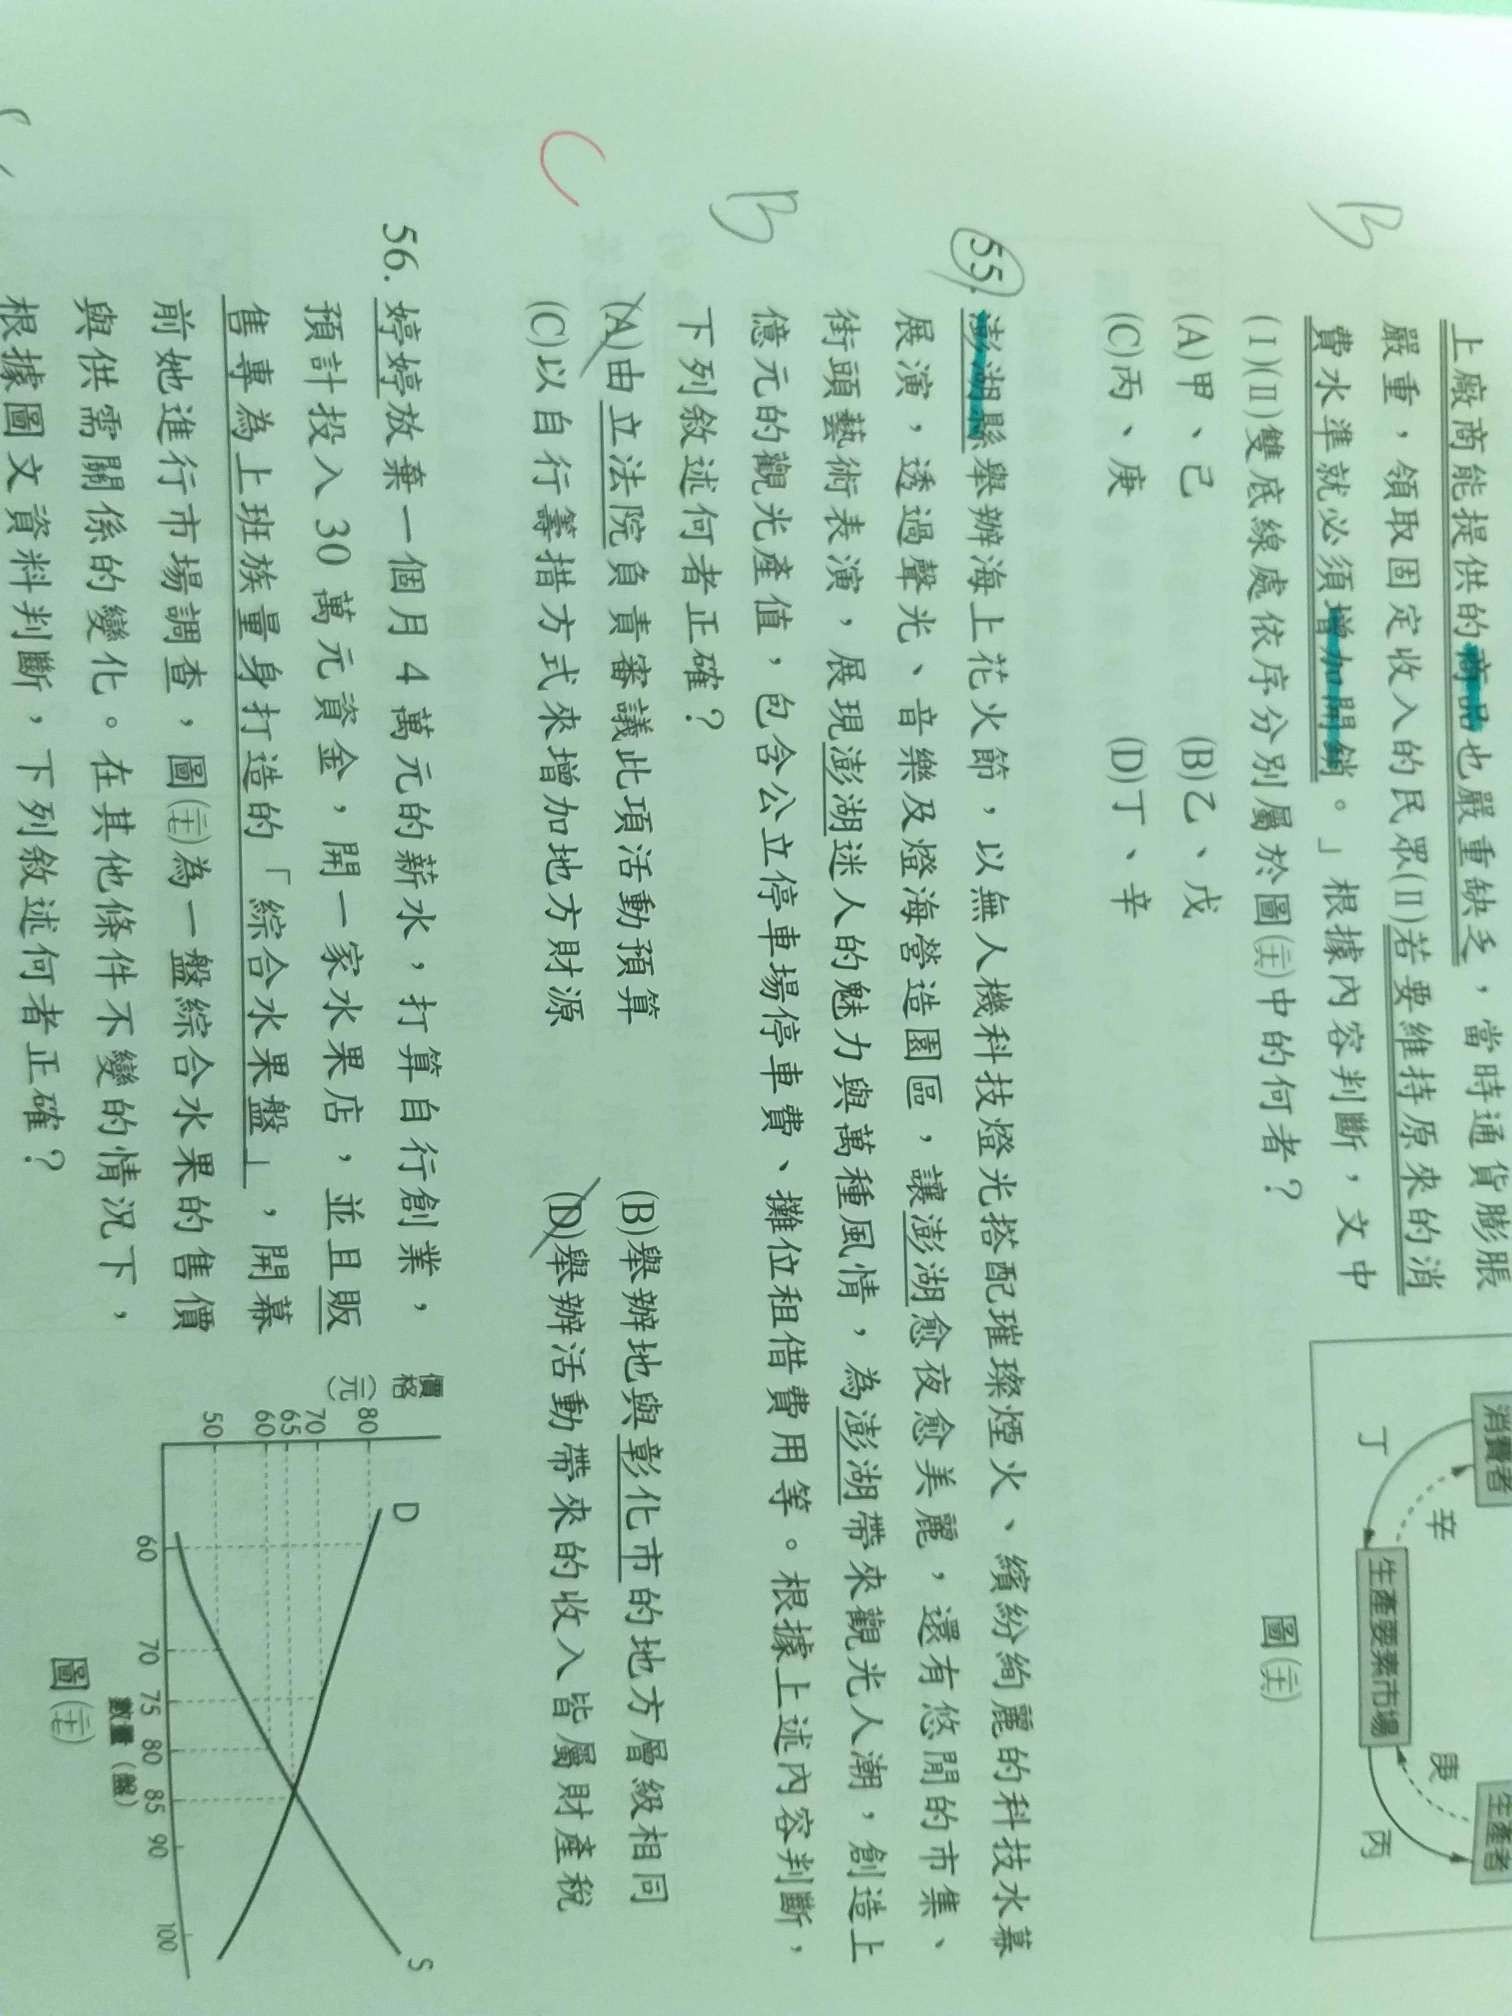 上廠商能提供的商品也嚴重缺乏，當時通貨膨脹
嚴重，領取固定收入的民眾(II)若要維持原來的消
費水準就必須增加開銷。」根據內容判斷，文中
(I)(II)雙底線處依序分別屬於圖(六)中的何者？
B
(A)甲、己 (B)乙、戊
(C)丙、庚 (D)丁、辛
消費者
生產者
丁
辛
生產要素市場
庚
丙
55. 澎湖縣舉辦海上花火節，以無人機科技燈光搭配璀璨煙火、繽紛絢麗的科技水幕
展演，透過聲光、音樂及燈海營造園區，讓澎湖愈夜愈美麗，還有悠閒的市集、
街頭藝術表演，展現澎湖迷人的魅力與萬種風情，為澎湖帶來觀光人潮，創造上
億元的觀光產值，包含公立停車場停車費、攤位租借費用等。根據上述內容判斷，
下列敘述何者正確？
B
(A)由立法院負責審議此項活動預算 (B)舉辦地與彰化市的地方層級相同
(C)以自行籌措方式來增加地方財源 (D)舉辦活動帶來的收入皆屬財產稅
C
56. 婷婷放棄一個月 4 萬元的薪水，打算自行創業，
預計投入 30 萬元資金，開一家水果店，並且販
售專為上班族量身打造的「綜合水果盤」，開幕
前她進行市場調查，圖(七)為一盤綜合水果的售價
與供需關係的變化。在其他條件不變的情況下，
根據圖文資料判斷，下列敘述何者正確？
價格
(元)
80
70
65
60
50
D
S
60 70 75 80 85 90 100
數量（盤）